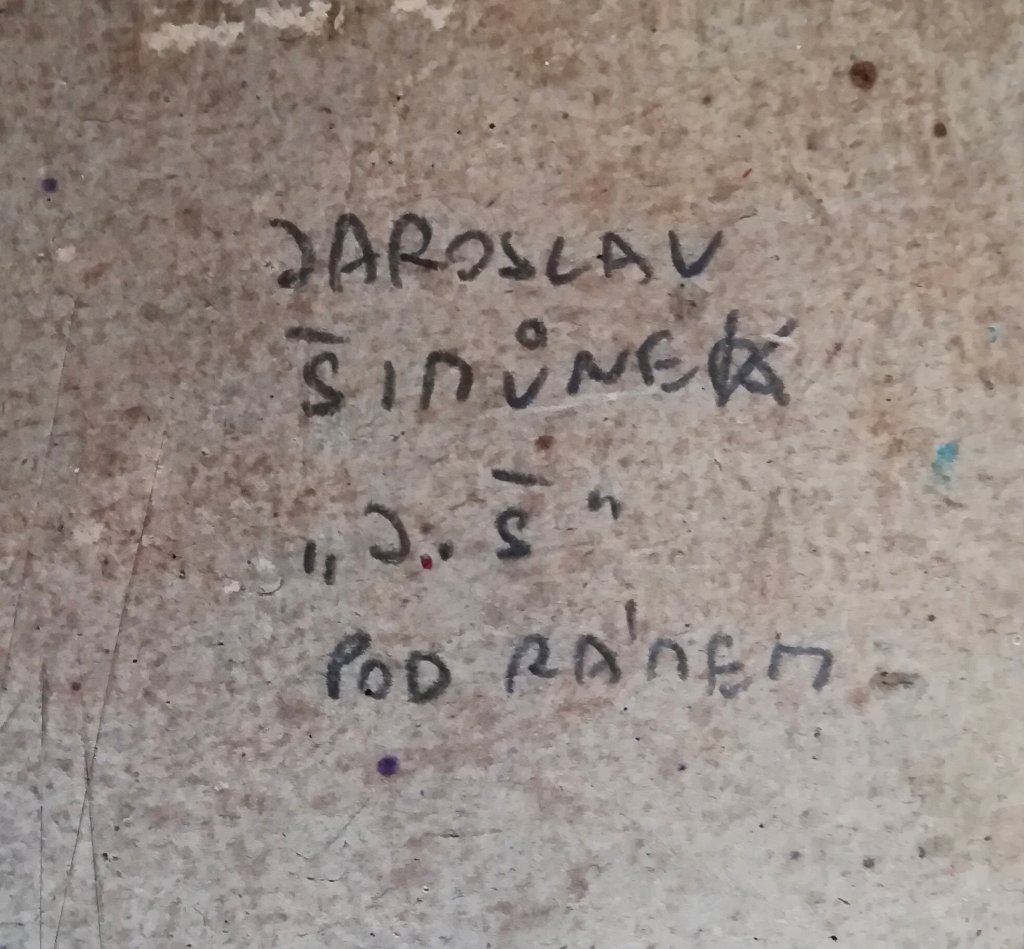 JAROSLAV
ŠIMŮNEK
„J. Š"
POD RÁMEM -